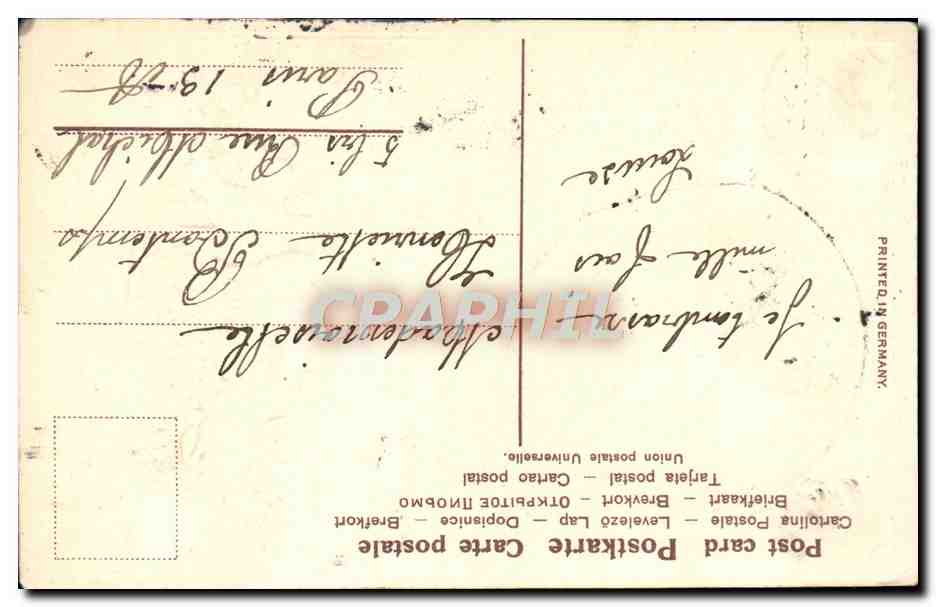 Post card Postkarte Carte postale
Cartolina Postale — Levelező Lap — Dopisnice — Brefkort
Briefkaart — Brevkort — ОТКРЫТОЕ ПИСЬМО
Tarjeta postal — Cartao postal
Union postale Universelle.
PRINTED IN GERMANY.
Je t'embrasse
mille fois
Louise
Mademoiselle
Henriette Bontemps
5 bis Rue Michal
Paris 13
CRAPHIL